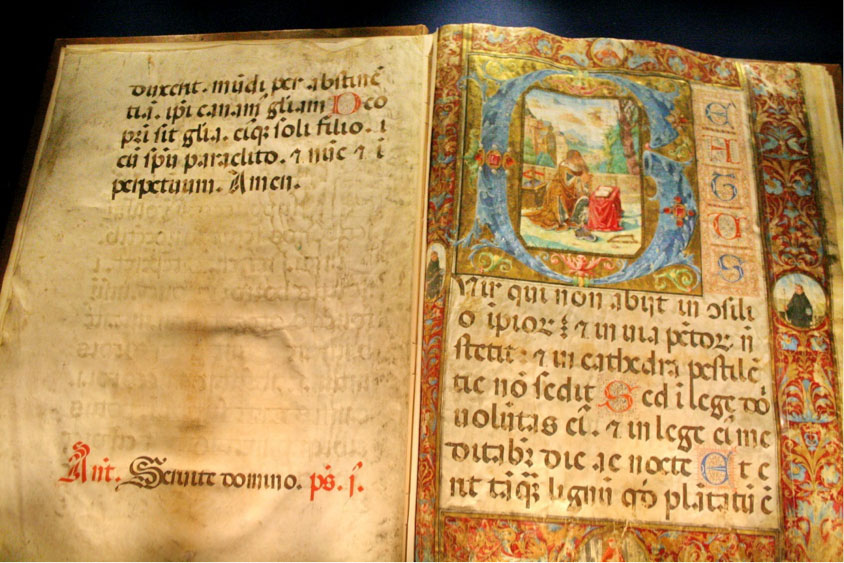 duxerit. mūdi per abstinē
tiā. ip̄i canam gl̄iam Deo
pr̄i sit gl̄ia. eiqꝫ soli filio. i
cū sp̄u paraclito. ⁊ nūc ⁊ ī
perpetuum. Amen.
Ant. Seruite domino. ps. j.
B
E
A
T
U
S
vir qui non abijt in ɔsili
o īpioꝝ ⁊ in uia pctoꝝ. n̄
stetit: ⁊ in cathedra pestilē
tie nō sedit Sed ī lege dō
uolūtas ei. ⁊ in lege ei me
ditabr̄ die ac nocte Et e
rit tāqꝫ lignū qđ plātatū ē